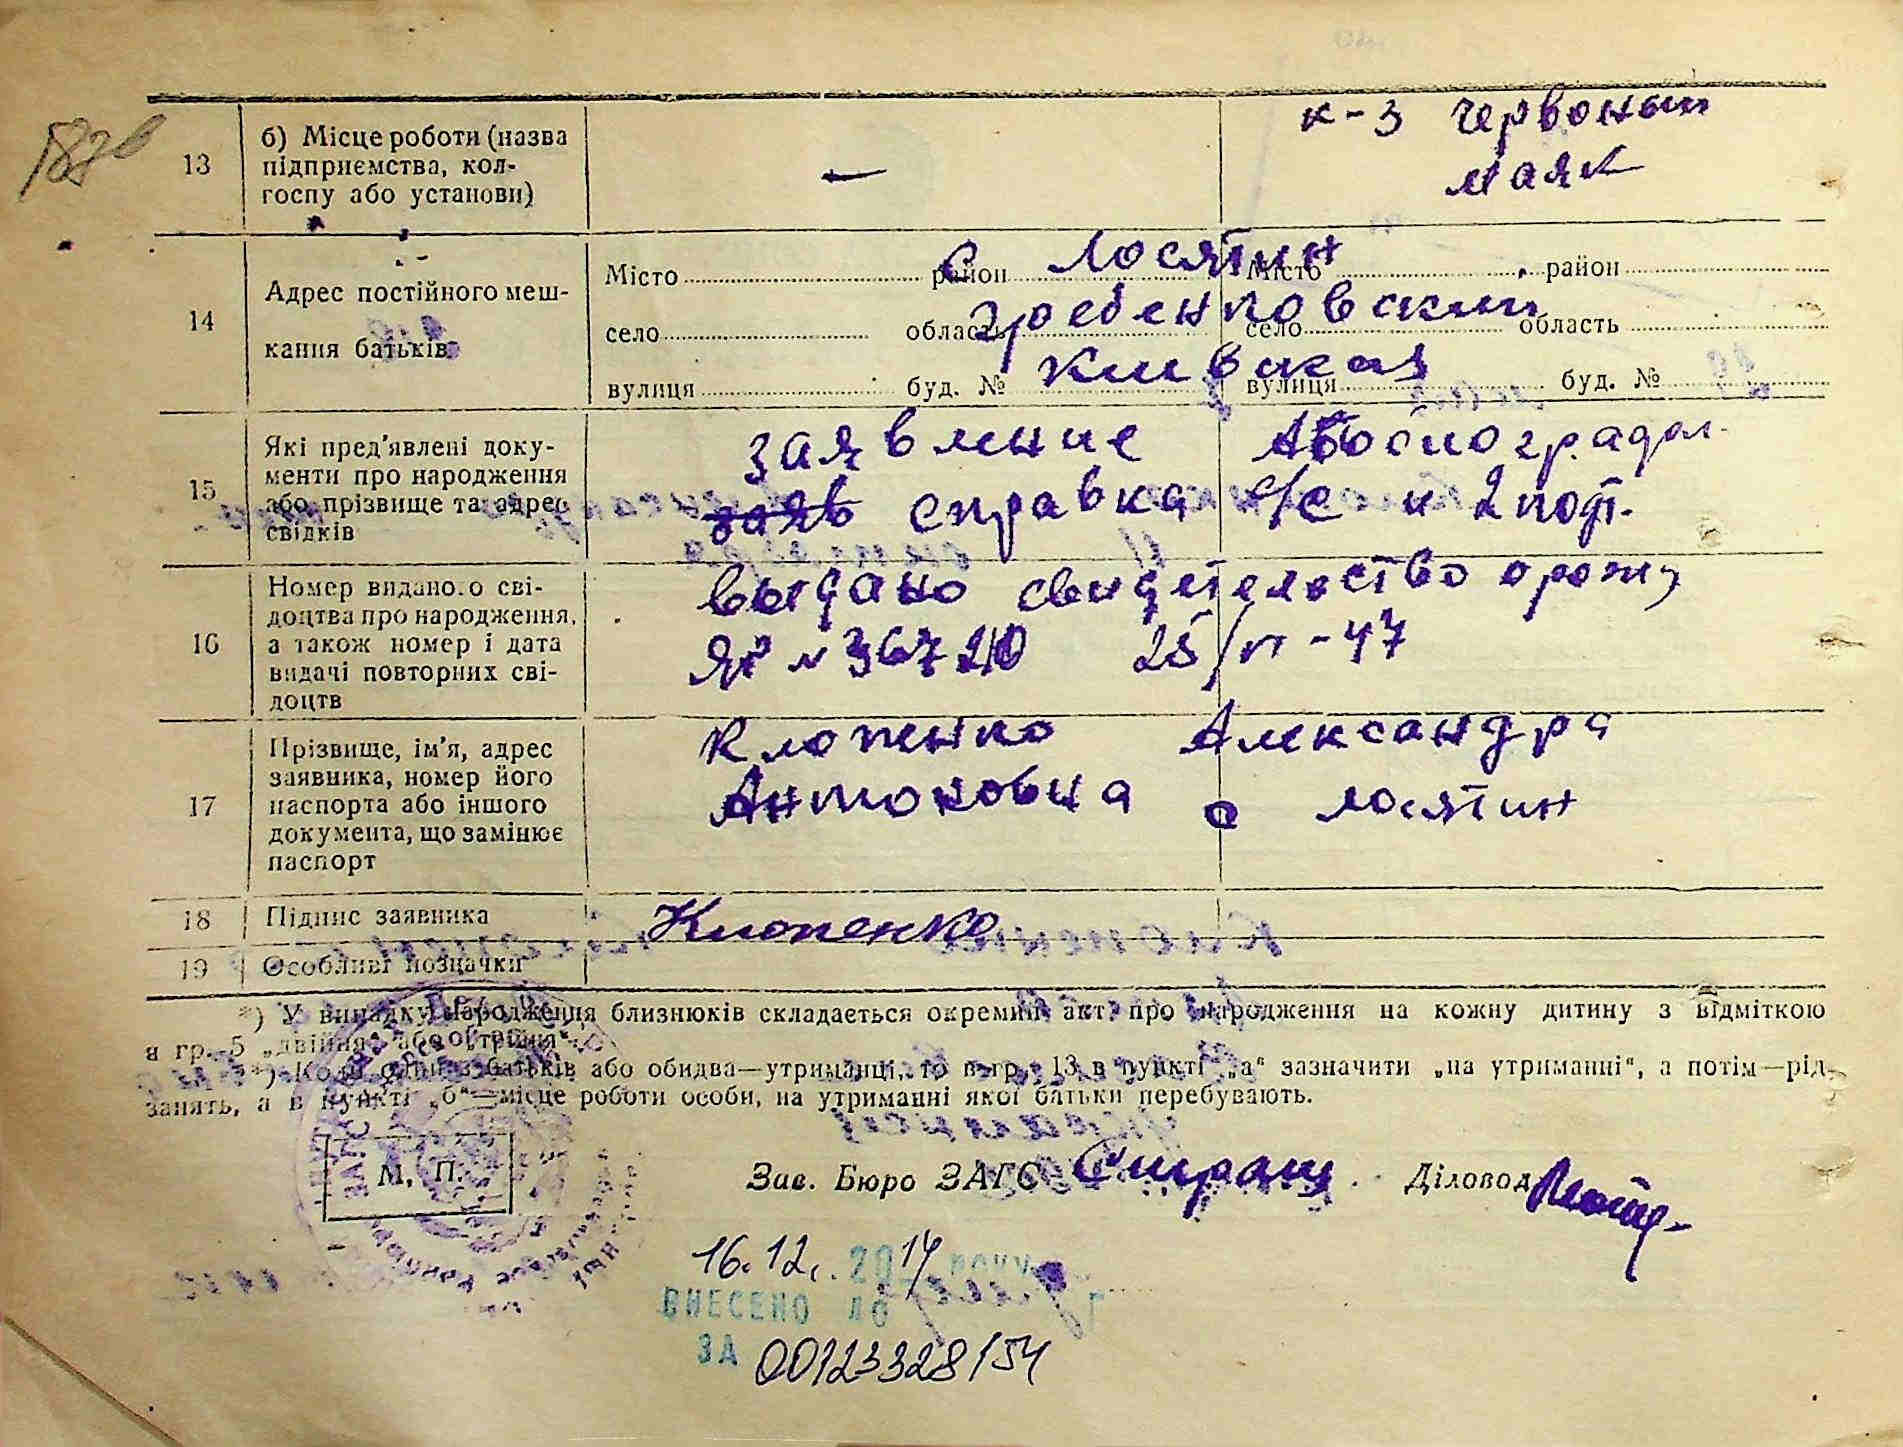 187
13
б) Місце роботи (назва
підприємства, кол-
госпу або установи)
—
к-з Червоный
маяк
14
Адрес постійного меш-
кання батьків
Місто район Місто район
село область село область
вулиця буд. № вулиця буд. №
с Лосятин
гребенковский
киевская
15
Які пред'явлені доку-
менти про народження
або прізвище та адрес
свідків
заявление
заяв справка с/с и 2 подп.
16
Номер видано.о сві-
доцтва про народження,
а також номер і дата
видачі повторних сві-
доцтв
выдано свидетельство о рожд
№ 367210 25/VI-47
17
Прізвище, ім'я, адрес
заявника, номер його
паспорта або іншого
документа, що замінює
паспорт
Клопенко Александра
Антоновна с Лосятин
18
Підпис заявника
Клопенко
19
Особливі позначки
*) У випадку народження близнюків складається окремий акт про народження на кожну дитину з відміткою
в гр. 5 „двійня“ або „трійня“.
**) Коли один з батьків або обидва—утриманці, то в гр. 13 в пункті „а“ зазначити „на утриманні“, а потім—рід
занять, а в пункті „б“—місце роботи особи, на утриманні якої батьки перебувають.
М. П.
Зав. Бюро ЗАГС Діловод
16.12. 2014 року
ВНЕСЕНО ДО Г
ЗА 00123328/54